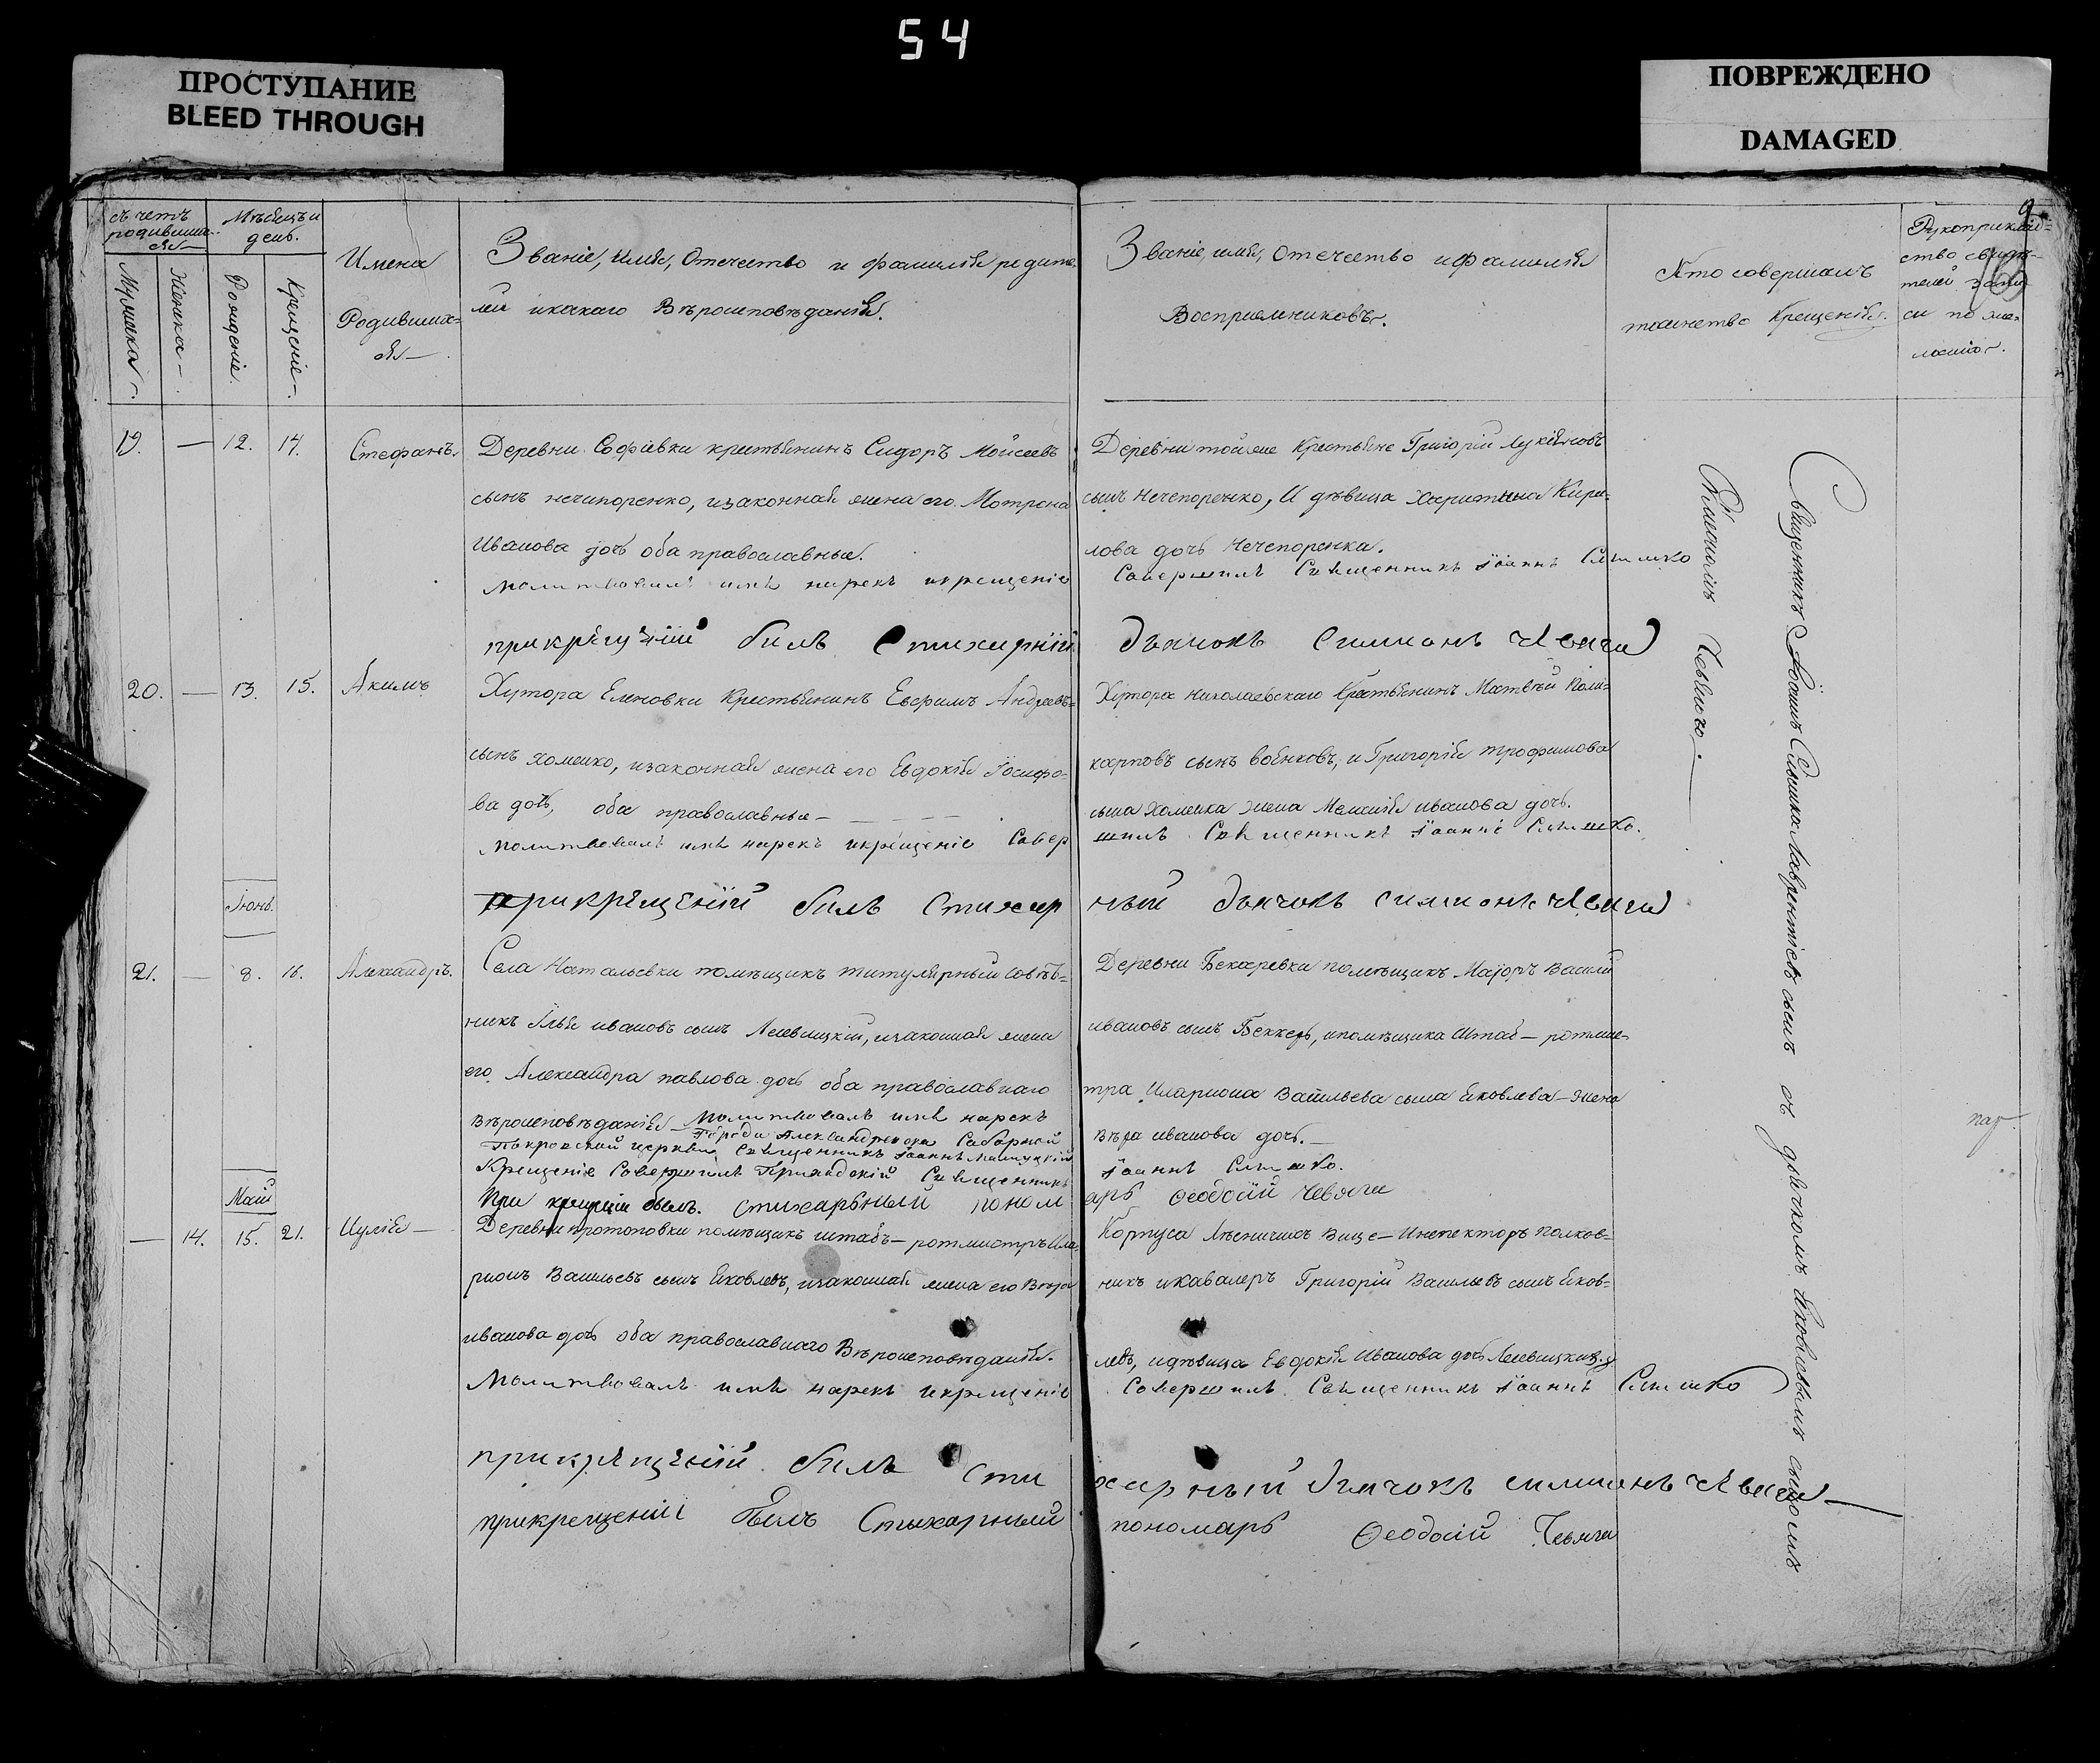 54
ПРОСТУПАНИЕ
BLEED THROUGH
ПОВРЕЖДЕНО
DAMAGED
счетъ родивших-ся
Мѣсяцъ и день.
Мужеска
Женска
Рожденіе.
Крещеніе
Имена Родивших-ся
Званіе, имя, Отечество и фамилія родите-
лей и какаго Вѣроисповѣданія.
Званіе, имя, Отечество и фамилія
Восприемниковъ.
Кто совершалъ
таинство Крещенія.
Рукоприклад-
ство свидѣ-
телей запи-
си по же-
ланію.
19. — 12. 14. Стефанъ.
Деревни Софіевки крестьянинъ Сидоръ Мойсеевъ
сынъ нечипоренко, и законная жена его Мотрона
Иванова дочь оба православные.
молитвовалъ имя нарекъ и крещеніе
прикрещеніи билъ Стихарній
Деревни тойже Крестьяне Григорій Лукіяновъ
сынъ Нечепоренко, И дѣвица Харитина Кири-
лова дочь Нечепоренка.
Совершилъ Священникъ Іоаннъ Слишко
дьячокъ Симионъ
20. — 13. 15. Акимъ
Хутора Еленовки Крестьянинъ Евфимъ Андреевъ-
сынъ хоменко, и законная жена его Евдокія Іосифо-
ва дочь, оба православные —
молитвовалъ имя нарекъ и крещеніе Совер
прикрещеніи билъ Стихар
Хутора Николаевскаго Крестьянинъ Матвѣй Поли-
карповъ сынъ воинковъ, и Григорія трофимова
сына хоменка жена Меланія иванова дочь.
шилъ Священникъ Іоаннъ Слишко.
ный дьячокъ симионъ
Іюнь.
21. — 8. 16. Александръ.
Села Натальевки помѣщикъ титулярный совѣт-
никъ Илья ивановъ сынъ Левицкій, и законная жена
его Александра павлова дочь оба православнаго
вѣроисповѣданія — Молитвовалъ имя нарекъ
Города Александровска Соборной
Покровской церкви Священникъ Іоаннъ
Крещеніе Совершилъ Приходскій Священникъ
При крещеніи былъ стихарьный поном
Деревни Бекаревки помѣщикъ Маіоръ Василій
ивановъ сынъ Беккеръ, и помѣщика Штаб — ротмис-
тра Илариона Васильева сына Яковлева — жена
вѣра иванова дочь. —
Іоаннъ Слишко.
арь Феодосій Чевяга
Май
— 14. 15. 21. Иулія —
Деревни протоповки помѣщикъ штабъ — ротмистръ Ила-
рионъ Васильевъ сынъ Яковлевъ, и законная жена его Вѣра
иванова дочь оба православнаго Вѣроисповѣданія.
Молитвовалъ имя нарекъ и крещеніе
прикрещеніи билъ сти
прикрещеніи былъ Стихарный
Корпуса Лѣсничихъ Вице — Инспекторъ полков-
никъ и кавалеръ Григорій Васильевъ сынъ Яков-
левъ, и дѣвица Евдокія Иванова дочь
Совершилъ Священникъ Іоаннъ Слишко
харный дьячокъ симионъ
пономарь Феодосій Чевяга
Священникъ Іоаннъ Слишка Лаврентіевъ сынъ съ дьячкомъ Яковлевымъ сыномъ
Симеономъ Чевягою. —